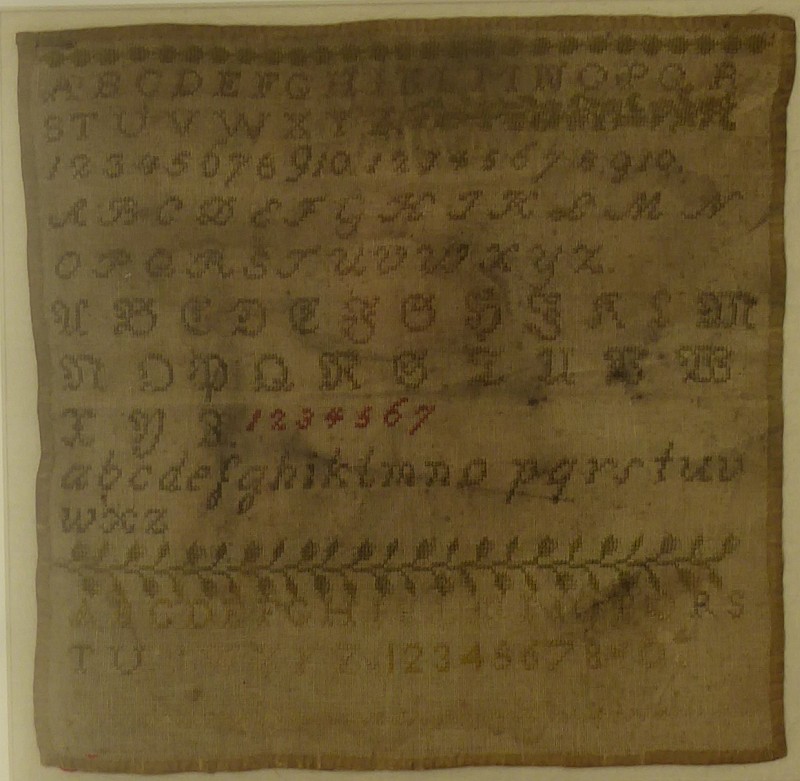 A B C D E F G H I K L M N O P Q R
S T U V W X Y Z
1 2 3 4 5 0 7 8 9 10 1 2 3 4 5 6 7 8 9 10
A B C D E F G H I K L M N
O P Q R S T U V W X Y Z
A B C D E F G H I K L M
N O P Q R S T U V W
X Y Z 1 2 3 4 5 6 7
a b c d e f g h i k l m n o p q r s t u v
w x z
A B C D E F G H I R S
T U Y Z 1 2 3 4 5 6 7 8 9 0